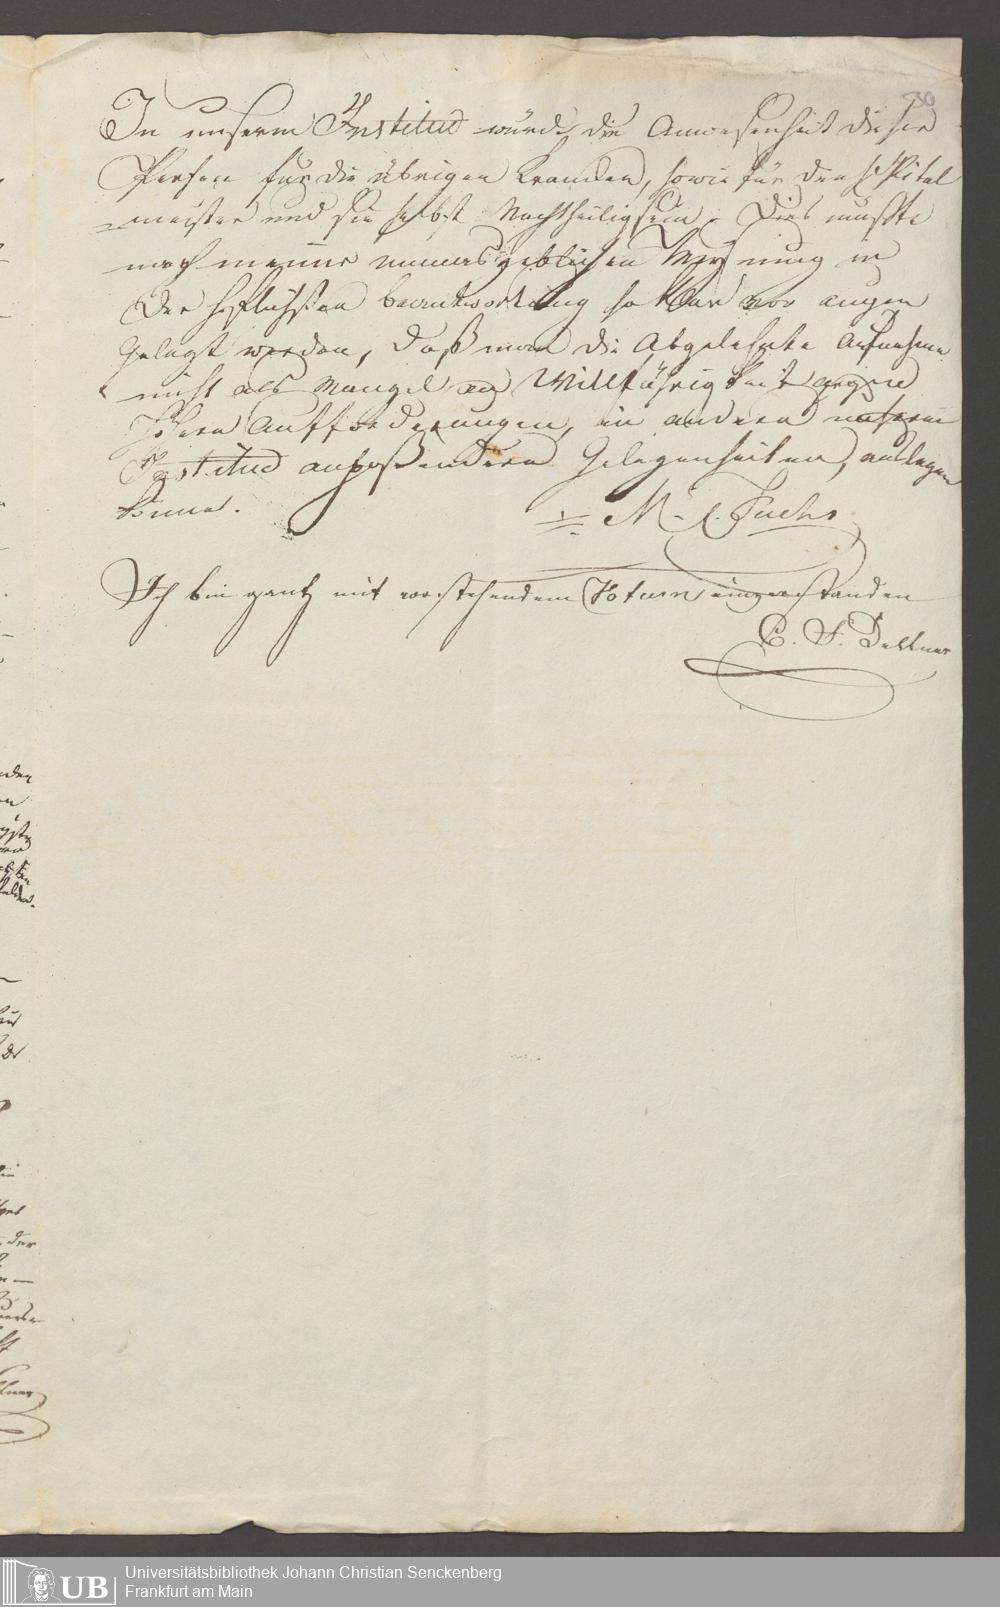 30
In unserm Institud würde die Anwesenheit dieser
Person für die übrigen Kranken, sowie für den HSpital
=meister und sie selbst Nachtheilig sein. Dies müßte
nach meiner unmasgeblichen Meynung in
der höflichsten beantwortung so klar vor augen
Gelegt werden, daß man die Abgelehnte Aufnahme
nicht als Mangel an Willfährigkeit gegen
höhern Aufforderungen, in andern unserm
Institud anpaßendern Gelegenheiten, auslegen
könne.
M. C. Fuchs
Ich bin gantz mit vorstehendem Votum einverstanden
C. F. Dettner
Universitätsbibliothek Johann Christian Senckenberg
Frankfurt am Main
UB